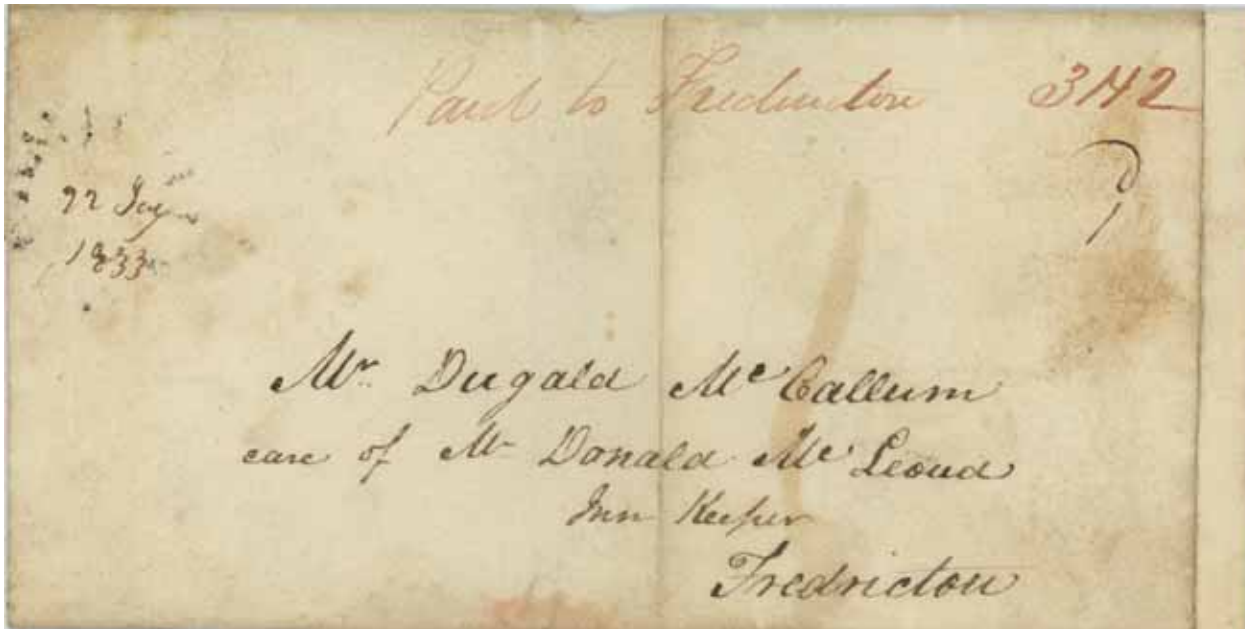 Paid to Fredericton 3N2
1833
Mr. Dugald Mc Callum
care of Mr Donald Mc Leoud
Inn Keeper
Fredricton